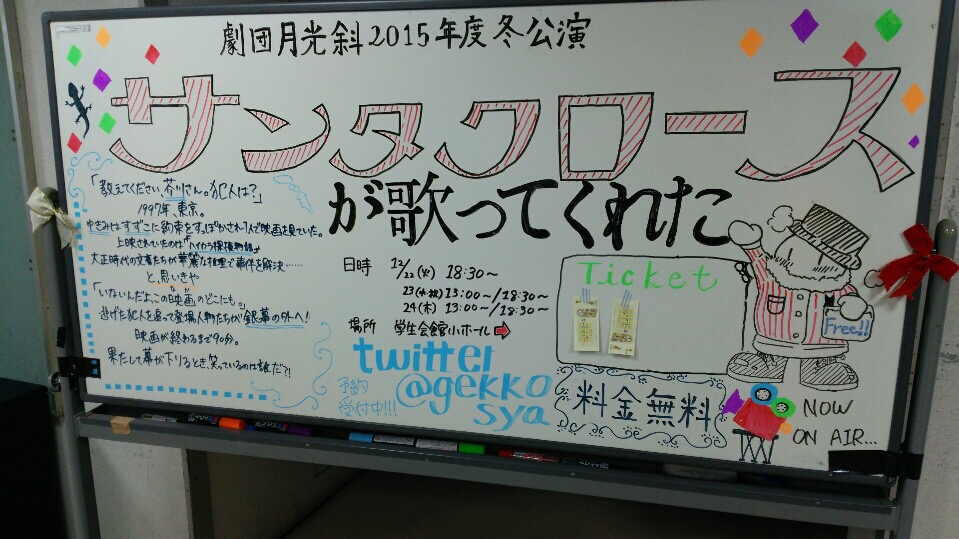 劇団月光斜2015年度冬公演
サンタクロース
が歌ってくれた
「教えてください、芥川さん。犯人は?」
1997年 東京。
ゆきみはすずこに約束をすっぽかされ1人で映画を見ていた。
上映されていたのは「ハイカラ探偵物語」
大正時代の文豪たちが華麗な推理で事件を解決……
と思いきや
「いないんだよ、この映画のどこにも。」
逃げた犯人を追って登場人物たちが銀幕の外へ!
映画が終わるまで90分。
果たして幕が下りるとき、笑っているのは誰だ?!
日時 12/22(火) 18:30〜
23(水・祝) 13:00〜/18:30〜
24(木) 13:00〜/18:30〜
場所 学生会館小ホール
twitter
@gekko
sya
予約
受付中!!!
Ticket
Free!!
料金無料
NOW
ON AIR...